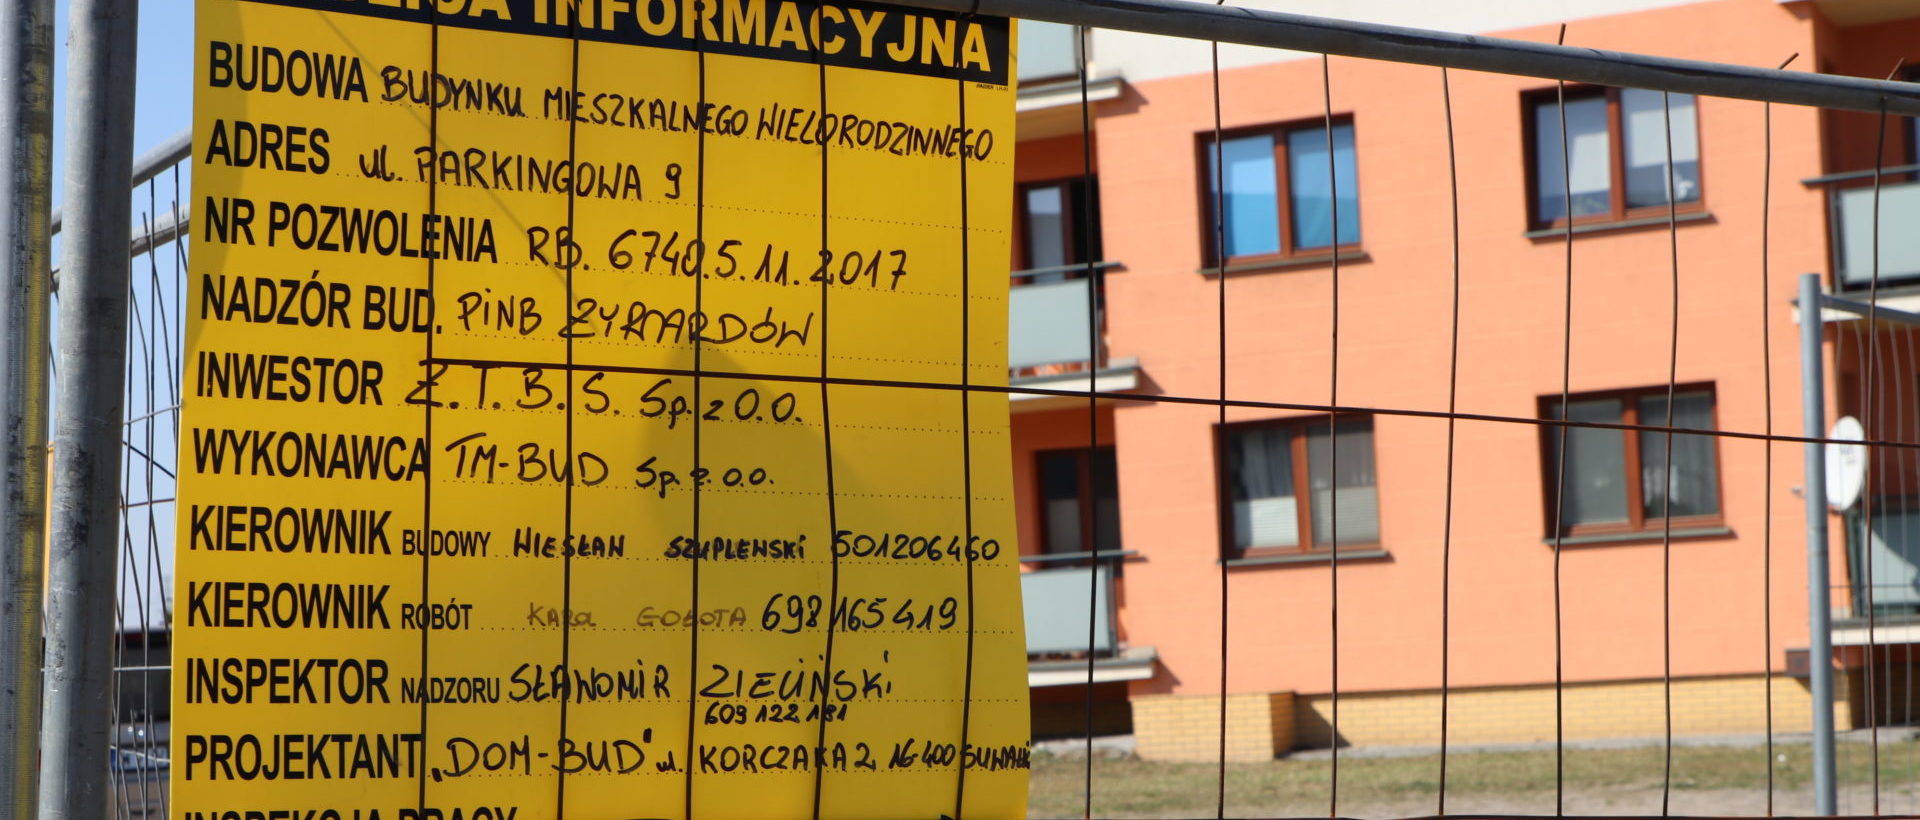 INFORMACYJNA
BUDOWA BUDYNKU MIESZKALNEGO WIELORODZINNEGO
ADRES ul. PARKINGOWA 9
NR POZWOLENIA RB. 6740.5.11.2017
NADZÓR BUD. PiNB ŻYRARDÓW
INWESTOR Ż.T.B.S. Sp. z O.O.
WYKONAWCA TM-BUD Sp. z. o.o.
KIEROWNIK BUDOWY WIESŁAW 501206460
KIEROWNIK ROBÓT KAROL GOŁOTA 698 165 419
INSPEKTOR NADZORU SŁAWOMIR ZIELIŃSKi
609 122 181
PROJEKTANT „DOM-BUD" ul. KORCZAKA 2 16-400 SUWAŁKI
INSPEKCJA PRACY